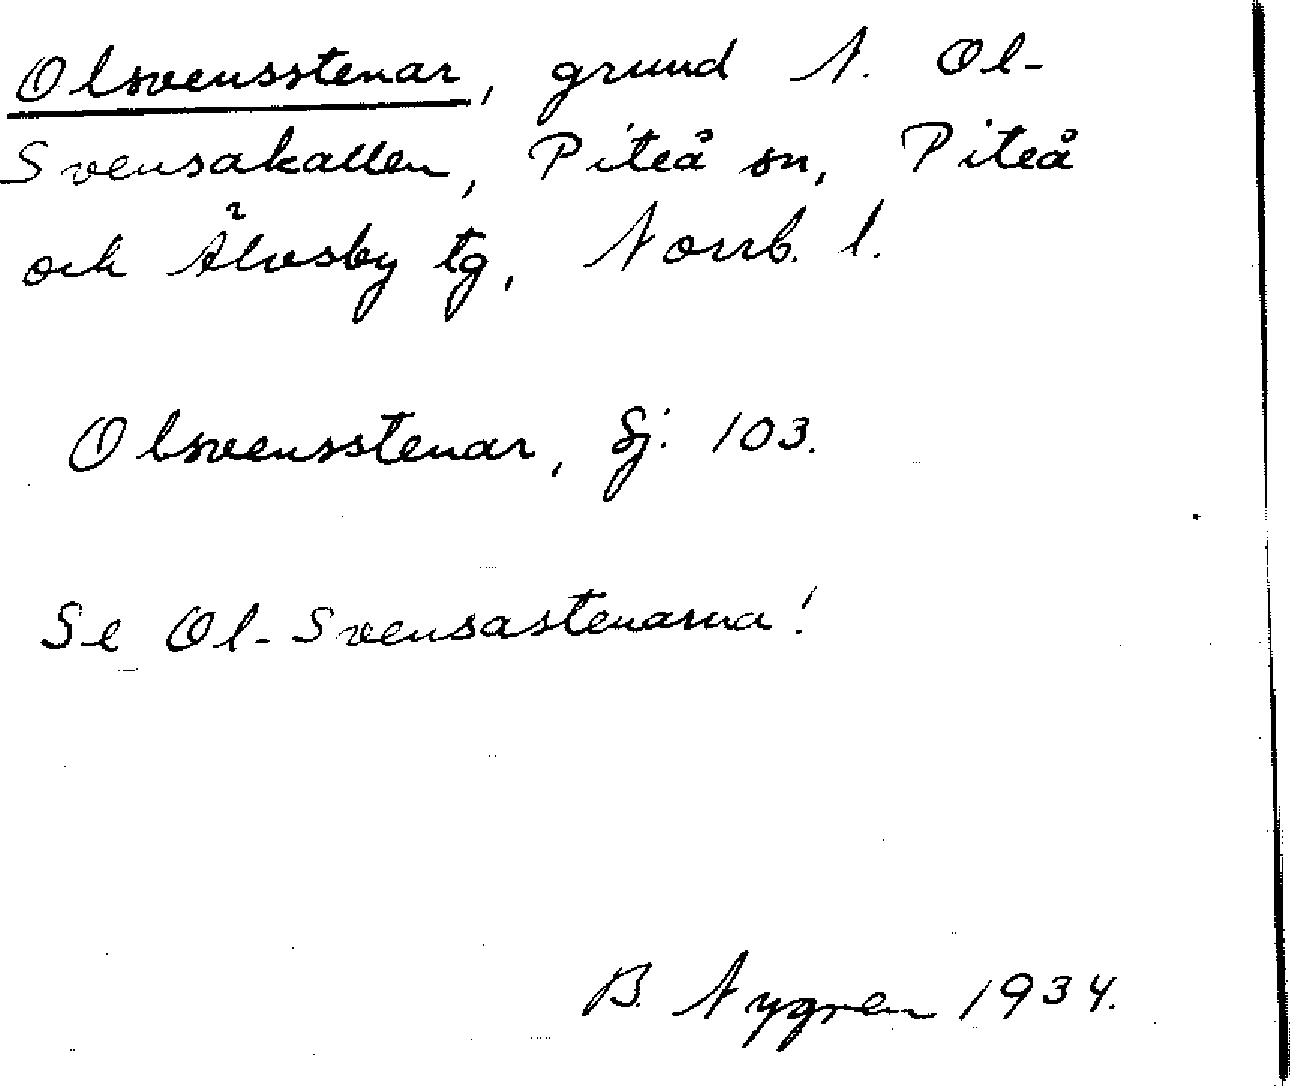 Olsvensstenar, grund N. Ol-
Svensakallen, Piteå sn, Piteå
och Älvsby tg, Norrb. l.
Olsvensstenar, Sj: 103.
Se Ol-Svensastenarna!
B. Nygren 1934.